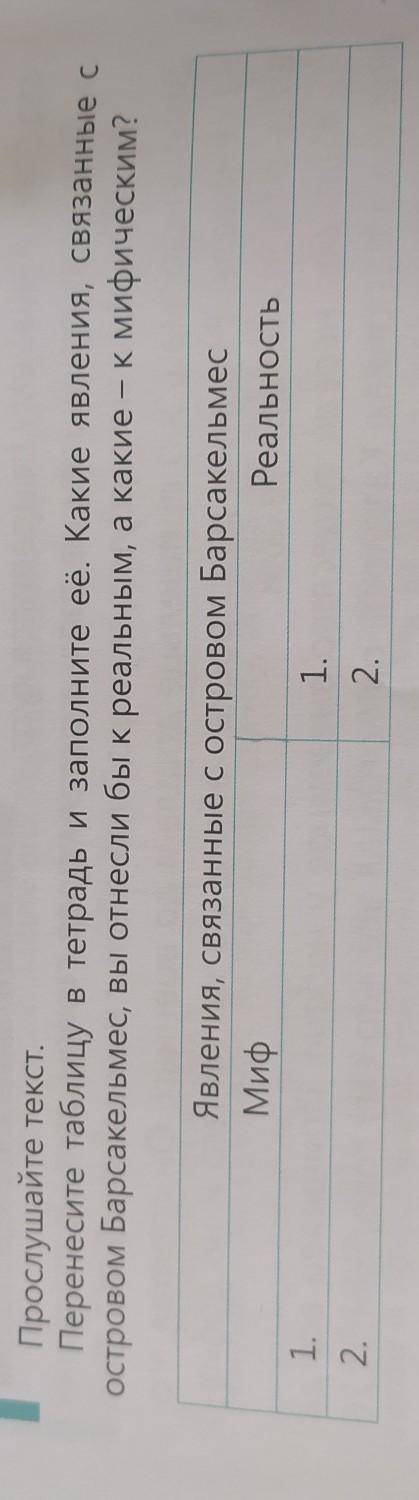 Прослушайте текст.
Перенесите таблицу в тетрадь и заполните её. Какие явления, связанные с
островом Барсакельмес, вы отнесли бы к реальным, а какие – к мифическим?
Явления, связанные с островом Барсакельмес
Миф Реальность
1. 1.
2. 2.